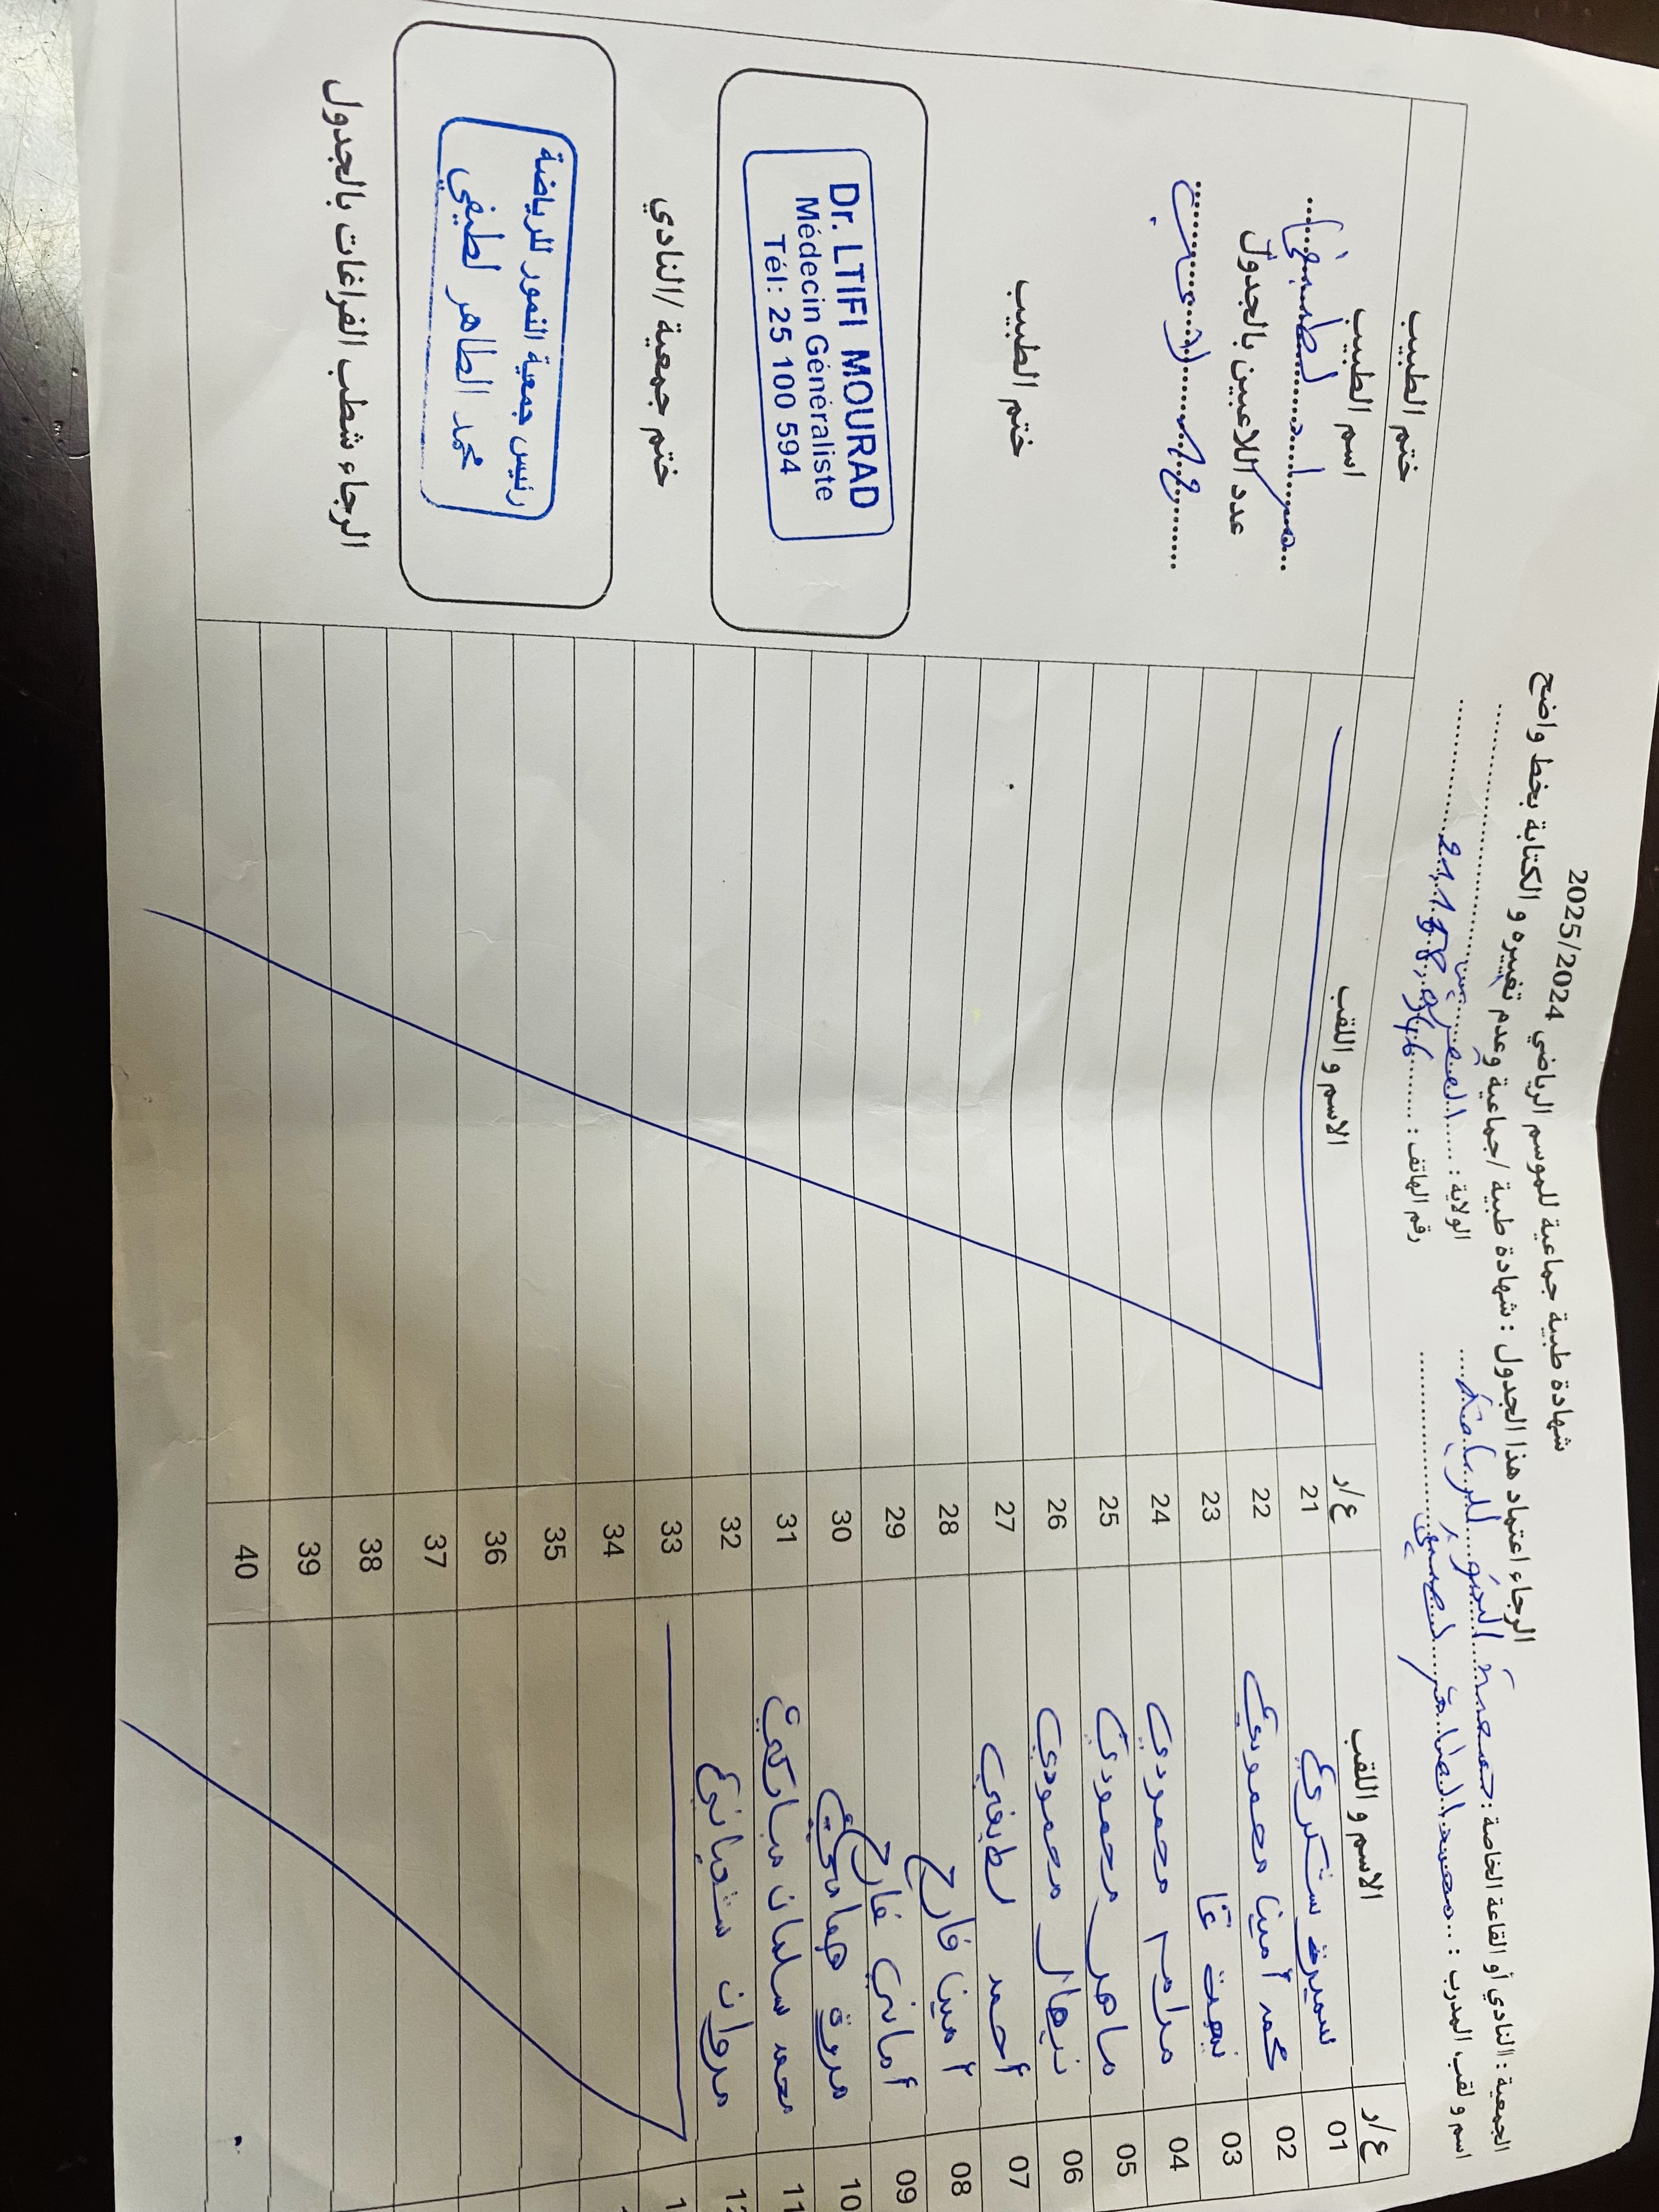 شهادة طبية جماعية للموسم الرياضي 2025/2024
الرجاء اعتماد هذا الجدول : شهادة طبية / جماعية وعدم تغييره و الكتابة بخط واضح
الجمعية : النادي أو القاعة الخاصة : جمعية النمور للرياضة
الولاية : القصرين
اسم و لقب المدرب : محمد الطاهر لطيفي
رقم الهاتف :
ع/ر الاسم و اللقب ع/ر الاسم و اللقب ختم الطبيب
01 سميرة شكري 21
02 محمد أمين محمودي 22
03 23
04 مرام محمودي 24
05 ماهر محمودي 25
06 نيهال محمودي 26
07 أحمد 27
08 أمين فارح 28
09 أماني فارح 29
10 مروة همامي 30
11 محمد سليمان مباركي 31
12 مروان شعباني 32
33
34
35
36
37
38
39
40
اسم الطبيب
مراد لطيفي
عدد اللاعبين بالجدول
ختم الطبيب
Dr. LTIFI MOURAD
Médecin Généraliste
Tél: 25 100 594
ختم جمعية /النادي
رئيس جمعية النمور للرياضة
محمد الطاهر لطيفي
الرجاء شطب الفراغات بالجدول